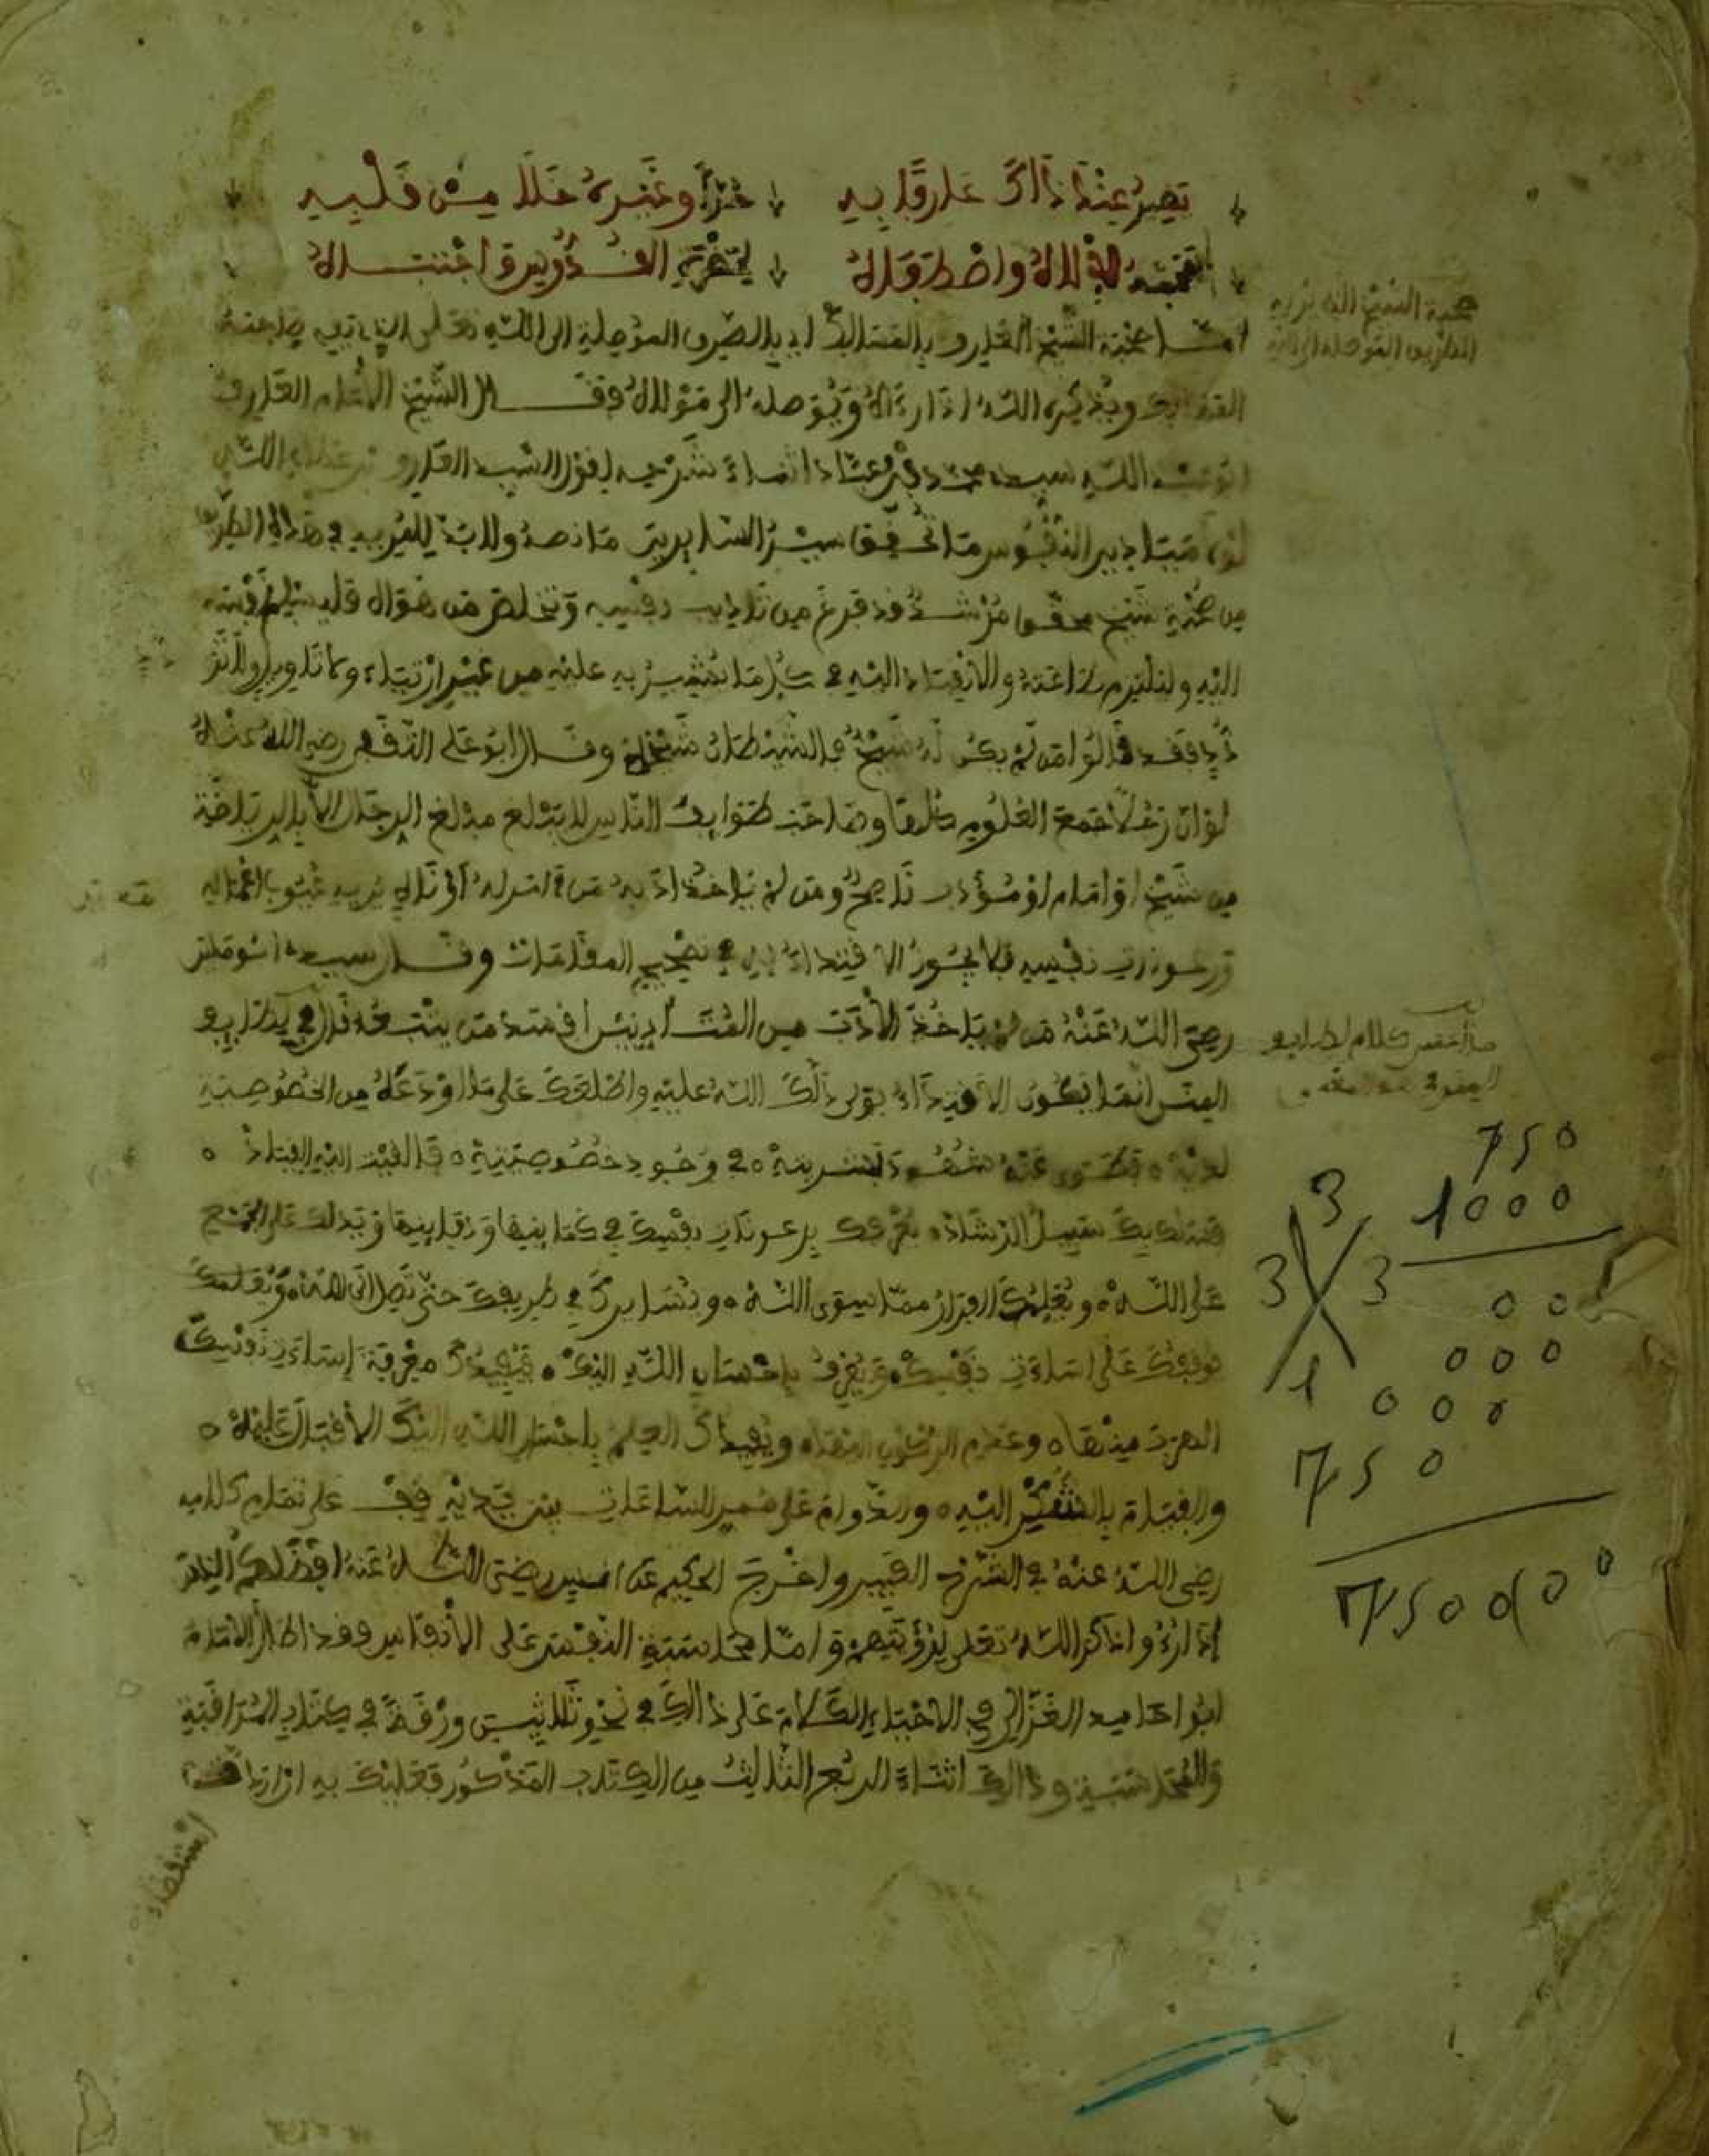 تصير عند ذاك عارفا به حرا وغيره خلا من قلبه
فحبه الاله واصطفاه لحضرة القدوس واجتباه
اما صحبة الشيخ العارف بالمسالك اي بالطرق الموصلة الى الله تعالى
ويذكره الله اذا رءاه ويوصله الى مولاه وقال الشيخ الامام العارف
بالله سيدي محمد بن عباد اثناء شرحه لقول الشيخ العارف بن عطاء الله
لولا ميادين النفوس ما تحقق سير السايرين ما نصه ولابد للمريد في هذه الطريق
من صحبة شيخ محقق مرشد قد فرغ من تاديب نفسه وتخلص من هواه فليسلم نفسه
اليه وليلتزم طاعته والانقياد اليه في كل ما يشير به عليه من غير ارتياء ولا تاويل ولا تر
دد فقد قالوا من لم يكن له شيخ فالشيطان شيخه وقال ابو علي الثقفي رضي الله عنه
لو ان رجلا جمع العلوم كلها وصاحب طوايف الناس لا يبلغ مبلغ الرجال الا بالرياضة
من شيخ او امام او مؤدب ناصح ومن لم ياخذ ادبه من ءامر له او ناه يريه عيوب اعماله
ورعونات نفسه فلا يجوز الاقتداء به في تصحيح المعاملات وقال سيدي ابو مدين
رضي الله عنه من لم ياخذ الادب من المتادبين افسد من يتبعه قال في لطايف
المنن انما يكون الاقتداء بولي دلك الله عليه واطلعك على ما اودعه من الخصوصية
لديه فطوى عنك شهود بشريته في وجود خصوصيته فالقيت اليه القياد
فسلك بك سبيل الرشاد يعرفك برعونات نفسك في كماينها ودقاينها ويدلك على الجمع
على الله ويعلمك الفرار مما سوى الله ويسايرك في طريقك حتى تصل الى الله
يوقفك على اساءة نفسك ويعرفك باحسان الله اليك فيفيدك معرفة اساءة نفسك
الهرب منها وعدم الركون اليها ويفيدك العلم باحسان الله اليك الاقبال عليه
والقيام بالشكر اليه والدوام على ممر الساعات بين يديه فقف على تمام كلامه
رضي الله عنه في الشرح الكبير واخرج الحكيم عن انس رضي الله عنه افضلكم الذين
اذا رءوا ذكر الله تعلى لرؤيتهم واما محاسبة النفس على الانفاس فقد اطال الامام
ابو احامد الغزالي في الاحياء الكلام على ذالك في نحو ثلاثين ورقة في كتاب المراقبة
والمحاسبة وذالك اثناء الربع الثالث من الكتاب المذكور فعليك به ان اردت
استقصاء
صحبة الشيخ
كلام لطايف
750
1000
3
3 3
1
00
000
000
750
750000